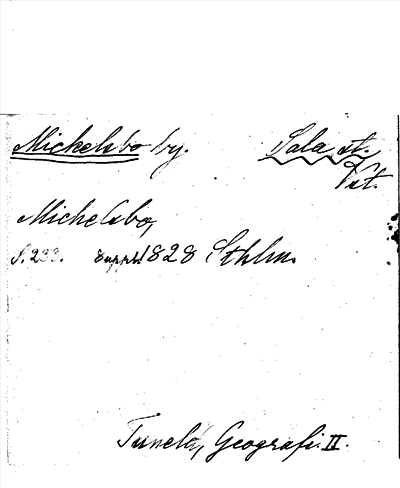 Michelsbo by. Sala st.
Vst.
Michelsbo,
S. 233. Suppl. 1828 Sthlm.
Tuneld, Geografi. II.